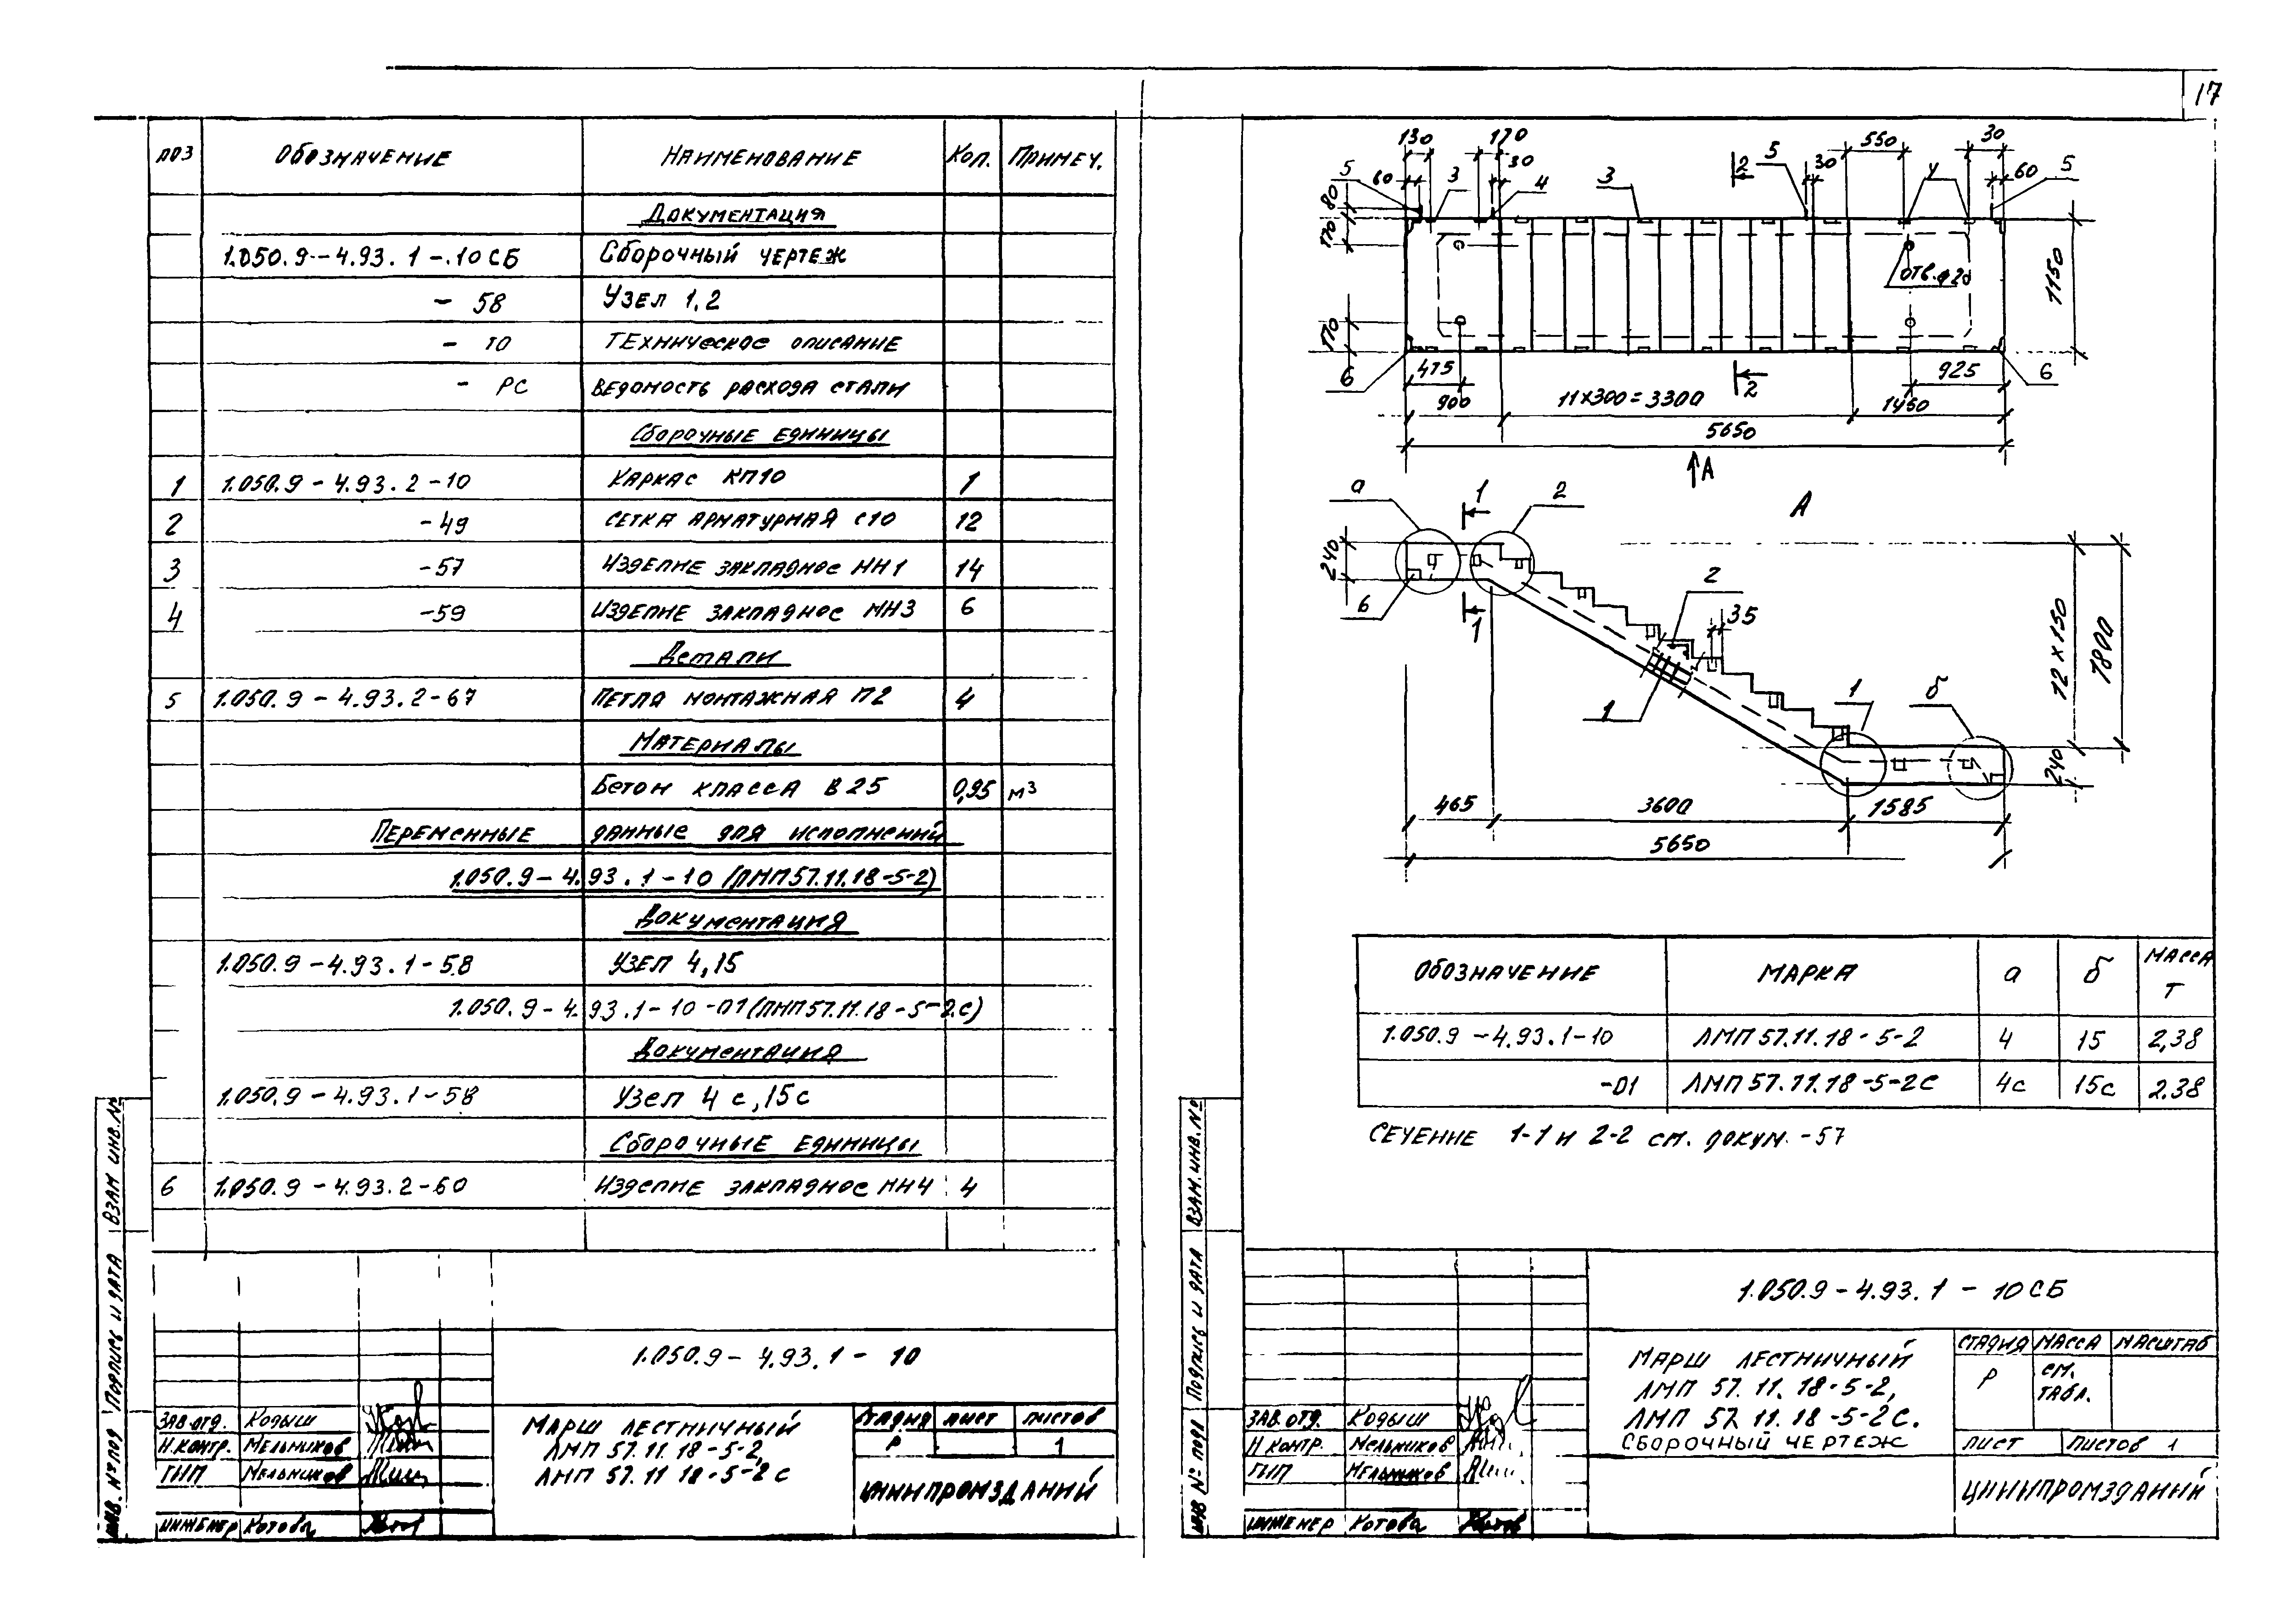 17
ПОЗ ОБОЗНАЧЕНИЕ НАИМЕНОВАНИЕ КОЛ. ПРИМЕЧ.
ДОКУМЕНТАЦИЯ
1.050.9-4.93.1-10СБ СБОРОЧНЫЙ ЧЕРТЕЖ
- 58 УЗЕЛ 1,2
- ТО ТЕХНИЧЕСКОЕ ОПИСАНИЕ
- РС ВЕДОМОСТЬ РАСХОДА СТАЛИ
СБОРОЧНЫЕ ЕДИНИЦЫ
1 1.050.9-4.93.2-10 КАРКАС КП10 1
2 -49 СЕТКА АРМАТУРНАЯ С10 12
3 -57 ИЗДЕЛИЕ ЗАКЛАДНОЕ МН1 14
4 -59 ИЗДЕЛИЕ ЗАКЛАДНОЕ МН3 6
ДЕТАЛИ
5 1.050.9-4.93.2-67 ПЕТЛЯ МОНТАЖНАЯ П2 4
МАТЕРИАЛЫ
БЕТОН КЛАССА В25 0,95 м³
ПЕРЕМЕННЫЕ ДАННЫЕ ДЛЯ ИСПОЛНЕНИЙ
1.050.9-4.93.1-10 (ЛМП57.11.18-5-2)
ДОКУМЕНТАЦИЯ
1.050.9-4.93.1-58 УЗЕЛ 4,15
1.050.9-4.93.1-10-01 (ЛМП57.11.18-5-2С)
ДОКУМЕНТАЦИЯ
1.050.9-4.93.1-58 УЗЕЛ 4с,15с
СБОРОЧНЫЕ ЕДИНИЦЫ
6 1.050.9-4.93.2-60 ИЗДЕЛИЕ ЗАКЛАДНОЕ МН4 4
ИНВ. № ПОД ПОДПИСЬ И ДАТА ВЗАМ ИНВ.№
1.050.9-4.93.1-10
ЗАВ.ОТД. КОДЫШ
Н.КОНТР. МЕЛЬНИКОВ
ГИП МЕЛЬНИКОВ
ИНЖЕНЕР КОТОВА
МАРШ ЛЕСТНИЧНЫЙ
ЛМП 57.11.18-5-2,
ЛМП 57.11 18-5-2 С
СТАДИЯ ЛИСТ ЛИСТОВ
Р 1
ЦНИИПРОМЗДАНИЙ
130 170 550 30
5 60 3 30 4 3 2 5 30 4 60 5
80
170
ОТВ.ф20
1150
170
6 475 2 925 6
900 11×300=3300 1450
5650
А
а 1 2 А
240
6 1
2
35
12×150
1800
1
1 б
240
465 3600 1585
5650
ОБОЗНАЧЕНИЕ МАРКА а б МАССА Т
1.050.9-4.93.1-10 ЛМП57.11.18-5-2 4 15 2,38
-01 ЛМП57.11.18-5-2С 4с 15с 2.38
СЕЧЕНИЕ 1-1 И 2-2 СМ. ДОКУМ. -57
ИНВ № ПОДЛ ПОДПИСЬ И ДАТА ВЗАМ.ИНВ.№
1.050.9-4.93.1-10СБ
ЗАВ.ОТД. КОДЫШ
Н КОНТР. МЕЛЬНИКОВ
ГИП МЕЛЬНИКОВ
ИНЖЕНЕР КОТОВА
МАРШ ЛЕСТНИЧНЫЙ
ЛМП 57.11.18-5-2,
ЛМП 57 11.18-5-2С.
СБОРОЧНЫЙ ЧЕРТЕЖ
СТАДИЯ МАССА МАСШТАБ
Р СМ. ТАБЛ.
ЛИСТ ЛИСТОВ 1
ЦНИИПРОМЗДАНИЙ